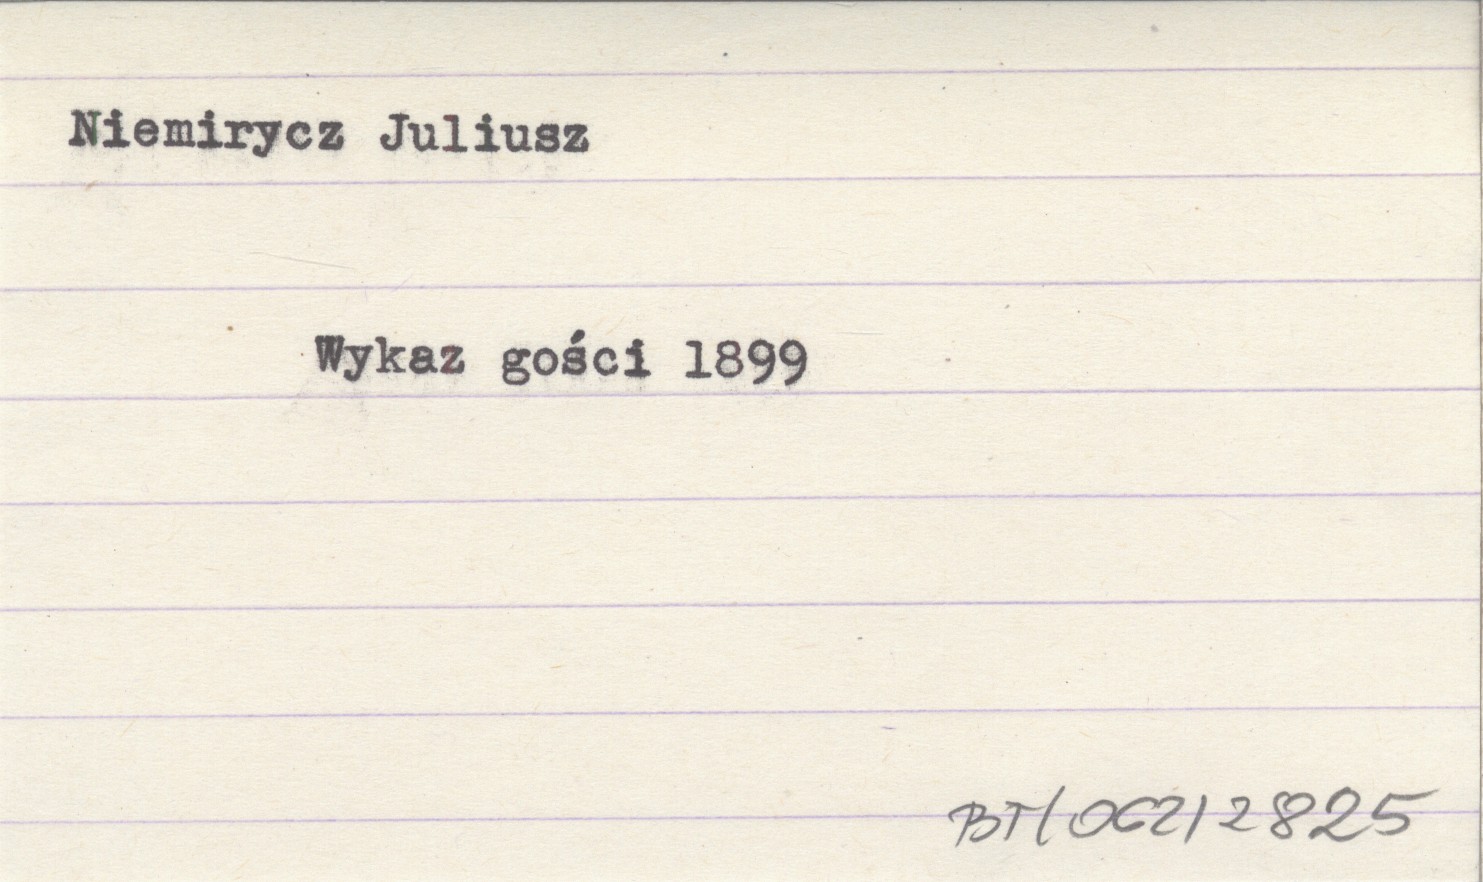 Niemirycz Juliusz
Wykaz gości 1899
BT/062/2825